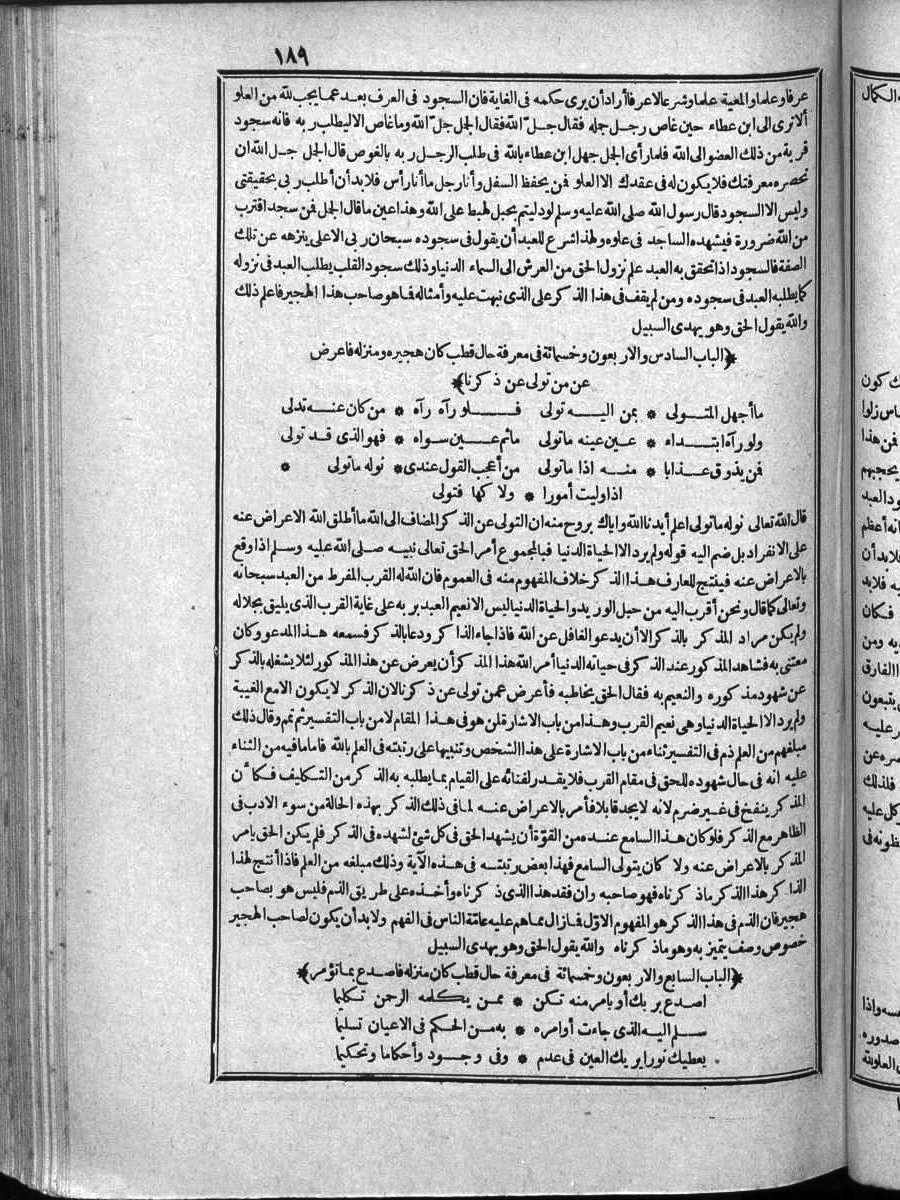 ١٨٩
عرفا وعلما والمعية علما وشرعا لاعرفا أراد أن يرى حكمه فى الغاية فان السجود فى العرف بعد عما يجب لله من العلو
ألا ترى الى ابن عطاء حين غاص رجل جمله فقال جل الله فقال الجمل جل الله وما غاص الا ليطلب ربه فانه سجود
قربة من ذلك العضو الى الله فلما رأى الجمل جهل ابن عطاء بالله فى طلب الرجل ربه بالغوص قال الجمل جل الله ان
تحصره معرفتك فلا يكون له فى عقدك الا العلو فمن يحفظ السفل وأنا رجل ما أنا رأس فلا بد أن أطلب ربى بحقيقتى
وليس الا السجود قال رسول الله صلى الله عليه وسلم لو دليتم بحبل لهبط على الله وهذا عين ما قال الجمل فمن سجد اقترب
من الله ضرورة فيشهده الساجد فى علوه ولهذا شرع للعبد أن يقول فى سجوده سبحان ربى الاعلى ينزهه عن تلك
الصفة فالسجود اذا تحقق به العبد علم نزول الحق من العرش الى السماء الدنيا وذلك سجود القلب يطلب العبد فى نزوله
كما يطلبه العبد فى سجوده ومن لم يقف فى هذا الذكر على الذى نبهت عليه وأمثاله فما هو صاحب هذا الهجير فاعلم ذلك
والله يقول الحق وهو يهدى السبيل
﴿الباب السادس والاربعون وخمسمائة فى معرفة حال قطب كان هجيره ومنزله فاعرض
عن من تولى عن ذكرنا﴾
ما أجهل المتولى * بمن اليه تولى فلو رآه رآه * من كان عنه تدلى
ولو رآه ابتداء * عين عينه ما تولى ما ثم عين سواه * فهو الذى قد تولى
فمن يذوق عذابا * منه اذا ما تولى من أعجب القول عندى * نوله ما تولى *
اذا وليت أمورا * ولا كها فتولى
قال الله تعالى نوله ما تولى اعلم أيدنا الله واياك بروح منه ان التولى عن الذكر المضاف الى الله ما أطلق الله الاعراض عنه
على الانفراد بل ضم اليه قوله ولم يرد الا الحياة الدنيا فبالمجموع أمر الحق تعالى نبيه صلى الله عليه وسلم اذا وقع
بالاعراض عنه فينتج للعارف هذا الذكر خلاف المفهوم منه فى العموم فان الله له القرب المفرط من العبد سبحانه
وتعالى كما قال ونحن أقرب اليه من حبل الوريد والحياة الدنيا ليس الا نعيم العبد بربه على غاية القرب الذى يليق بجلاله
ولم يكن مراد المذكر بالذكر الا أن يدعو الغافل عن الله فاذا جاء الذاكر ودعا بالذكر فسمعه هذا المدعو وكان
معتنى به فشاهد المذكور عند الذكر فى حياته الدنيا أمر الله هذا المذكر أن يعرض عن هذا المذكور لئلا يشغله بالذكر
عن شهود مذكوره والنعيم به فقال الحق يخاطبه فأعرض عمن تولى عن ذكرنا لان الذكر لا يكون الا مع الغيبة
ولم يرد الا الحياة الدنيا وهى نعيم القرب وهذا من باب الاشارة لمن هو فى هذا المقام لا من باب التفسير ثم تمم وقال ذلك
مبلغهم من العلم ذم فى التفسير ثناء من باب الاشارة على هذا الشخص وتنبيها على رتبته فى العلم بالله فاما ما فيه من الثناء
عليه انه فى حال شهوده للحق فى مقام القرب فلا يقدر لفنائه على القيام بما يطلبه به الذكر من التكليف فكأن
المذكر ينفخ فى غير ضرم لانه لا يجد قابلا فأمر بالاعراض عنه لما فى ذلك الذكر بهذه الحالة من سوء الادب فى
الظاهر مع الذكر فلو كان هذا السامع عنده من القوة أن يشهد الحق فى كل شئ لشهده فى الذكر فلم يكن الحق يامر
المذكر بالاعراض عنه ولا كان يتولى السامع فهذا بعض رتبته فى هذه الآية وذلك مبلغه من العلم فاذا أنتج لهذا
الذاكر هذا الذكر ما ذكرناه فهو صاحبه وان فقد هذا الذى ذكرناه وأخذه على طريق الذم فليس هو بصاحب
هجير فان الذم فى هذا الذكر هو المفهوم الاول فما زال مما هم عليه عامة الناس فى الفهم ولا بد أن يكون لصاحب الهجير
خصوص وصف يتميز به وهو ما ذكرناه والله يقول الحق وهو يهدى السبيل
﴿الباب السابع والاربعون وخمسمائة فى معرفة حال قطب كان منزله فاصدع بما تؤمر﴾
اصدع بربك أو بامر منه تكن * ممن يكلمه الرحمن تكليما
سلم اليه الذى جاءت أوامره * به من الحكم فى الاعيان تسليما
يعطيك نورا يريك العين فى عدم * وفى وجود وأحكاما وتحكيما